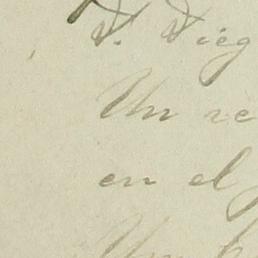 D. Dieg
Un re
en el
Un